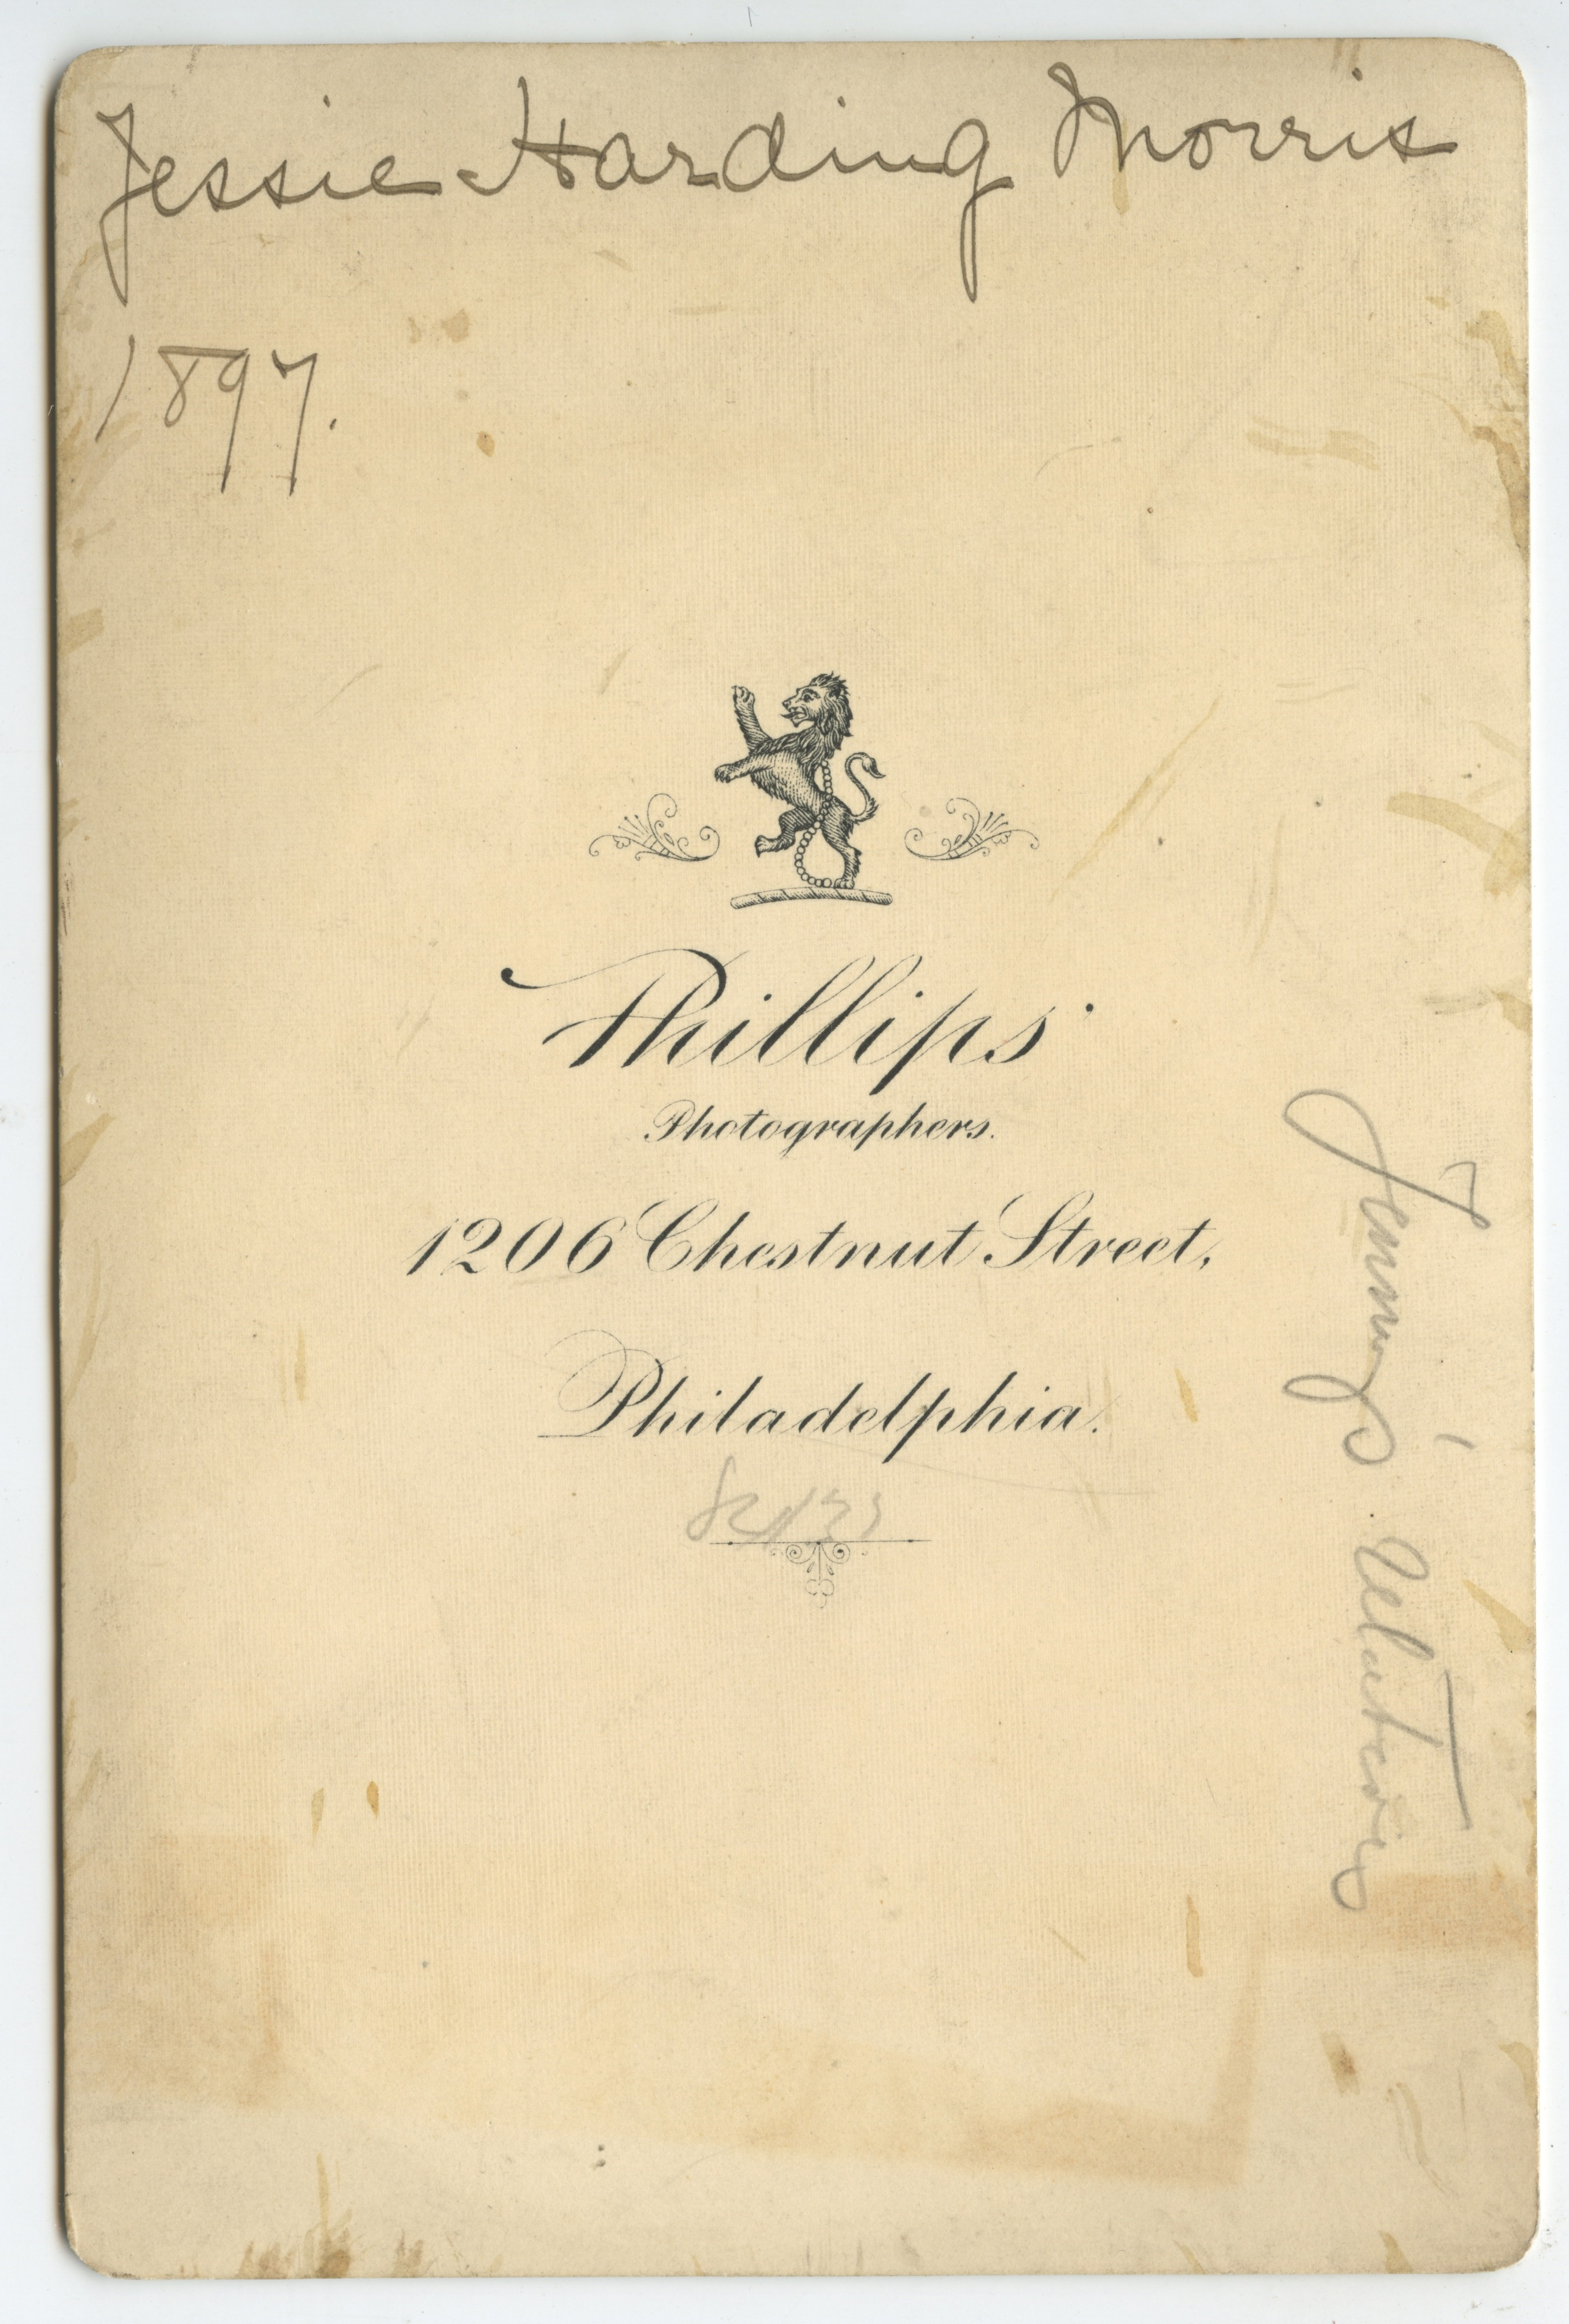 Jessie Harding Morris
1897.
Phillips
Photographers.
1206 Chestnut Street,
Philadelphia.